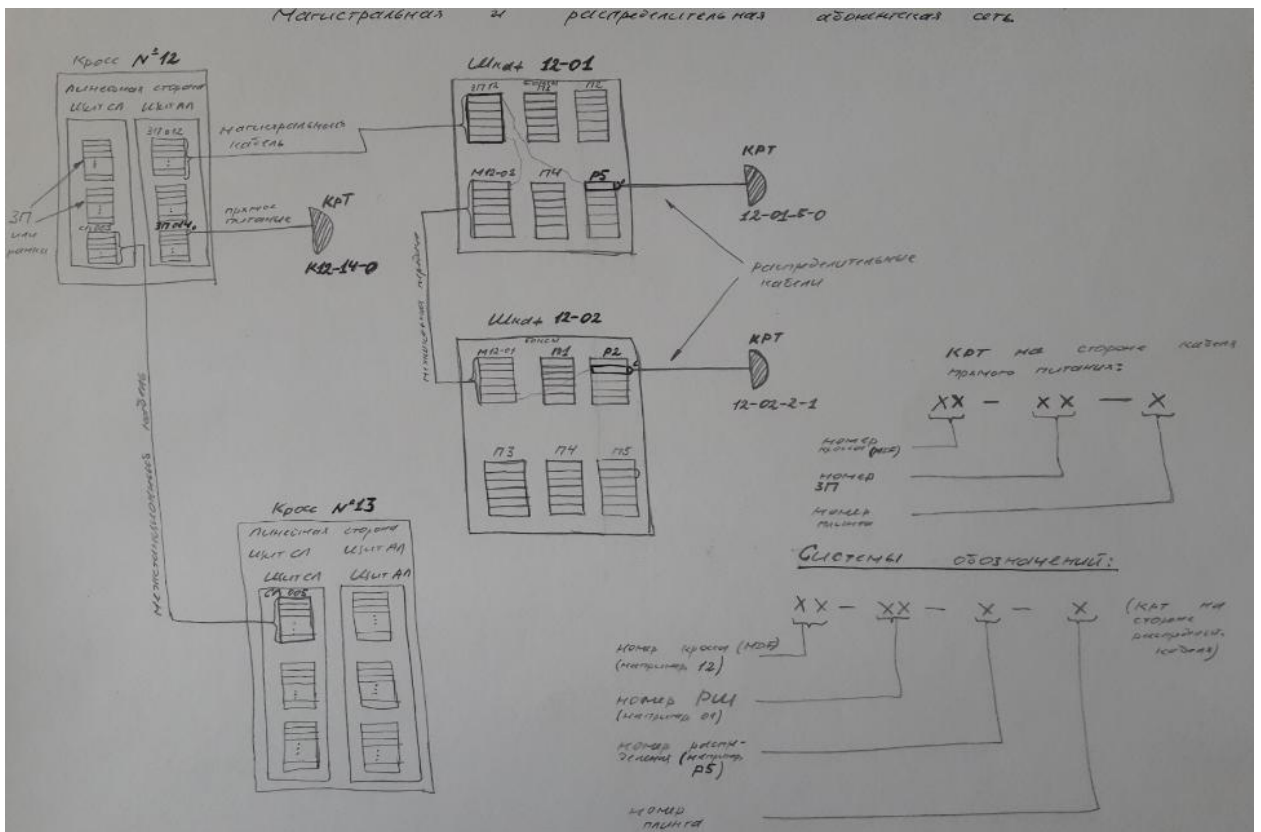 Магистральная и распределительная абонентская сеть
Кросс №12
Линейная сторона
Щит СЛ Щит АЛ
ЗП 012
ЗП
или
рамка
СЛ 005
ЗП 014
магистральный
кабель
прямое
питание
КРТ
К12-14-0
Межстанционный кабель
Шкаф 12-01
боксы
ЗП 12 П1 П2
М12-02 П4 Р5
КРТ
12-01-5-0
Распределительные
кабели
Шкаф 12-02
боксы
М12-01 П1 Р2
П3 П4 П5
КРТ
12-02-2-1
Кросс №13
Линейная сторона
Щит СЛ Щит АЛ
Щит СЛ Щит АЛ
СЛ 005
КРТ на стороне кабеля
прямого питания:
XX – XX – X
номер
кросса (MDF)
номер
ЗП
номер
плинта
Системы обозначений:
XX – XX – X – X
(КРТ на
стороне
распределит.
кабеля)
номер кросса (MDF)
(например 12)
номер РШ
(например 01)
номер распре-
деления (например
Р5)
номер
плинта